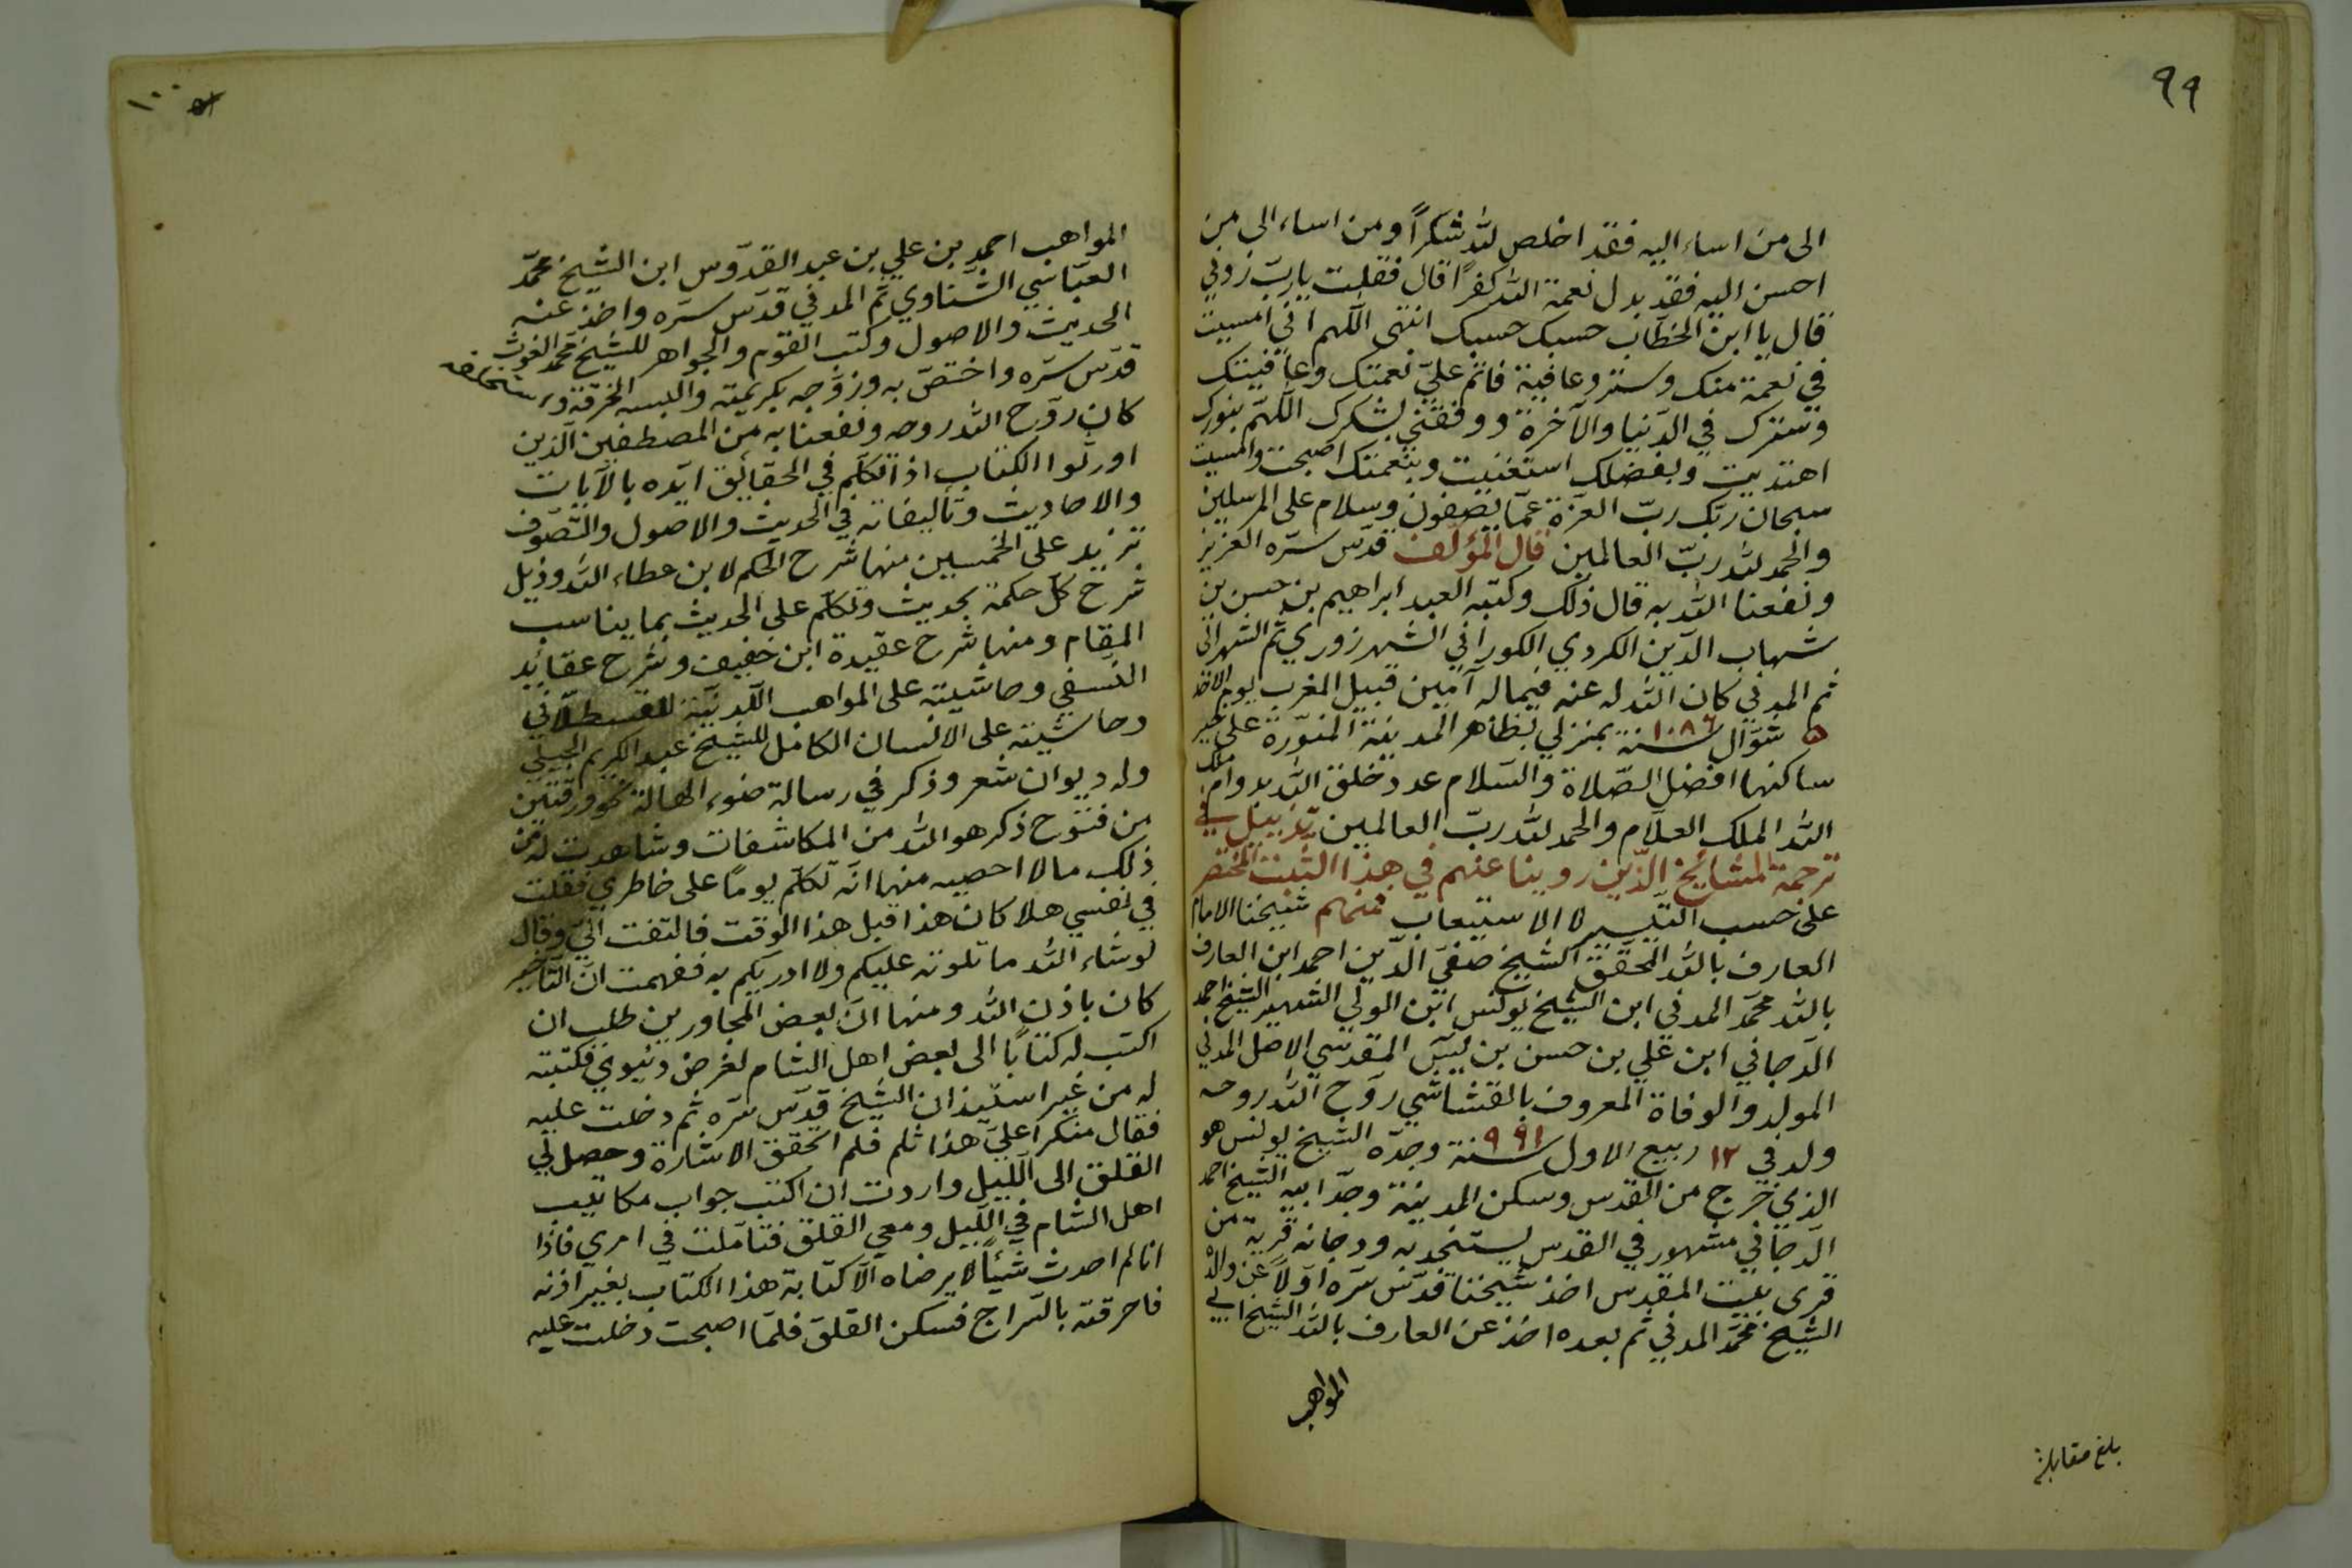 ٩٩
الى من اساء اليه فقد اخلص لله شكراً ومن اساء الى من
احسن اليه فقد بدل نعمة الله كفراً قال فقلت يا ربّ زدني
قال يا ابن الخطّاب حسبك حسبك انتهى اللّهم اني امسيت
في نعمة منك وستر وعافية فاتم عليّ نعمتك وعافيتك
وسترك في الدّنيا والآخرة ووفقني لشكرك اللّهمّ بنورك
اهتديت وبفضلك استغنيت وبنعمتك اصبحت وامسيت
سبحان ربّك ربّ العزّة عمّا يصفون وسلام على المرسلين
والحمد لله ربّ العالمين قال المؤلف قدّس سرّه العزيز
ونفعنا الله به قال ذلك وكتبه العبد ابراهيم بن حسن بن
شهاب الدّين الكردي الكوراني الشهرزوري ثم الشهراني
ثم المدني كان الله له عنه فيماله آمين قبيل المغرب يوم الاحد
٥ شوّال سنة ١٠٨٦ بمنزلي بظاهر المدينة المنوّرة على خير
ساكنها افضل الصّلاة والسّلام عدد خلق الله بدوام ملك
الله الملك العلّام والحمد لله ربّ العالمين تذييل في
ترجمة المشائخ الذّين روينا عنهم في هذا الثبت المختصر
على حسب التّيسير لا الاستيعاب فمنهم شيخنا الامام
العارف بالله المحقّق الشيخ صفيّ الدّين احمد ابن العارف
بالله محمّد المدني ابن الشيخ يونس ابن الولي الشهير الشيخ احمد
الدّجاني ابن علي بن حسن بن يٰسٓ المقدسي الاصل المدني
المولد والوفاة المعروف بالقشاشي روّح الله روحه
ولد في ١٢ ربيع الاول سنة ٩٩١ وجدّه الشيخ يونس هو
الذي خرج من القدس وسكن المدينة وجدّ ابيه الشيخ احمد
الدّجاني مشهور في القدس يستنجد به ودجانه قرية من
قرى بيت المقدس اخذ شيخنا قدّس سرّه اوّلاً عن والده
الشّيخ محمّد المدني ثم بعده اخذ عن العارف بالله الشيخ ابي
المواهب
بلغ مقابلة
١٠٠
المواهب احمد بن علي بن عبد القدّوس ابن الشيخ محمّد
العبّاسي الشّناوي ثم المدني قدّس سرّه واخذ عنه
الحديث والاصول وكتب القوم والجواهر للشيخ محمّد الغوث
قدّس سرّه واختصّ به وزوّجه بكريمته والبسه الخرقة
كان روّح الله روحه ونفعنا به من المصطفين الذين
اورثوا الكتاب اذا تكلّم في الحقائق ايّده بالآيات
والاحاديث وتأليفاته في الحديث والاصول والتّصوّف
تزيد على الخمسين منها شرح الحكم لابن عطاء الله وذيل
شرح كلّ حكمة بحديث وتكلّم على الحديث بما يناسب
المقام ومنها شرح عقيدة ابن خفيف وشرح عقائد
النّسفي وحاشيته على المواهب اللّدنيّة للقسطلّاني
وحاشيته على الانسان الكامل للشيخ عبد الكريم الجيلي
وله ديوان شعر وذكر في رسالة ضوء الهالة نحو ورقتين
من فتوح ذكر هو الله من المكاشفات وشاهدت له من
ذلك ما لا احصيه منها انّه تكلّم يوماً على خاطري فقلت
في نفسي هلا كان هذا قبل هذا الوقت فالتفت اليّ وقال
لو شاء الله ما تلوته عليكم ولا ادريكم به ففهمت انّ التّاخير
كان باذن الله ومنها انّ بعض المجاورين طلب ان
اكتب له كتاباً الى بعض اهل الشام لغرض دنيوي فكتبته
له من غير استيذان الشيخ قدّس سرّه ثم دخلت عليه
فقال منكراً عليّ هذا ثلم فلم اتحقق الاشارة وحصل لي
القلق الى اللّيل واردت ان اكتب جواب مكاتيب
اهل الشام في اللّيل ومعي القلق فتاملت في امري فاذا
انا لم احدث شيئاً لا يرضاه الّا كتابة هذا الكتاب بغير اذنه
فاحرقته بالسّراج فسكن القلق فلمّا اصبحت دخلت عليه